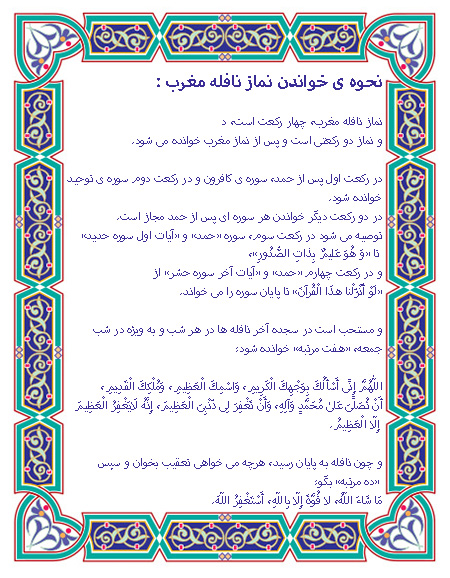 نحوه ی خواندن نماز نافله مغرب :
نماز نافله مغرب، چهار رکعت است، د
و نماز دو رکعتی است و پس از نماز مغرب خوانده می شود.
در رکعت اول پس از حمد، سوره ی کافرون و در رکعت دوم سوره ی توحید
خوانده شود.
در دو رکعت دیگر خواندن هر سوره ای پس از حمد مجاز است.
توصیه می شود در رکعت سوم، سوره «حمد» و «آیات اول سوره حدید»
تا «وَ هُوَ عَلیمٌ بِذاتِ الصُّدُورِ»،
و در رکعت چهارم «حمد» و «آیات آخر سوره حشر» از
«لَوْ أَنْزَلْنا هذَا الْقُرآنَ» تا پایان سوره را می خواند.
و مستحب است در سجده آخر نافله ها در هر شب و به ویژه در شب
جمعه، «هفت مرتبه» خوانده شود:
اللّهُمَّ إِنِّی أَسْأَلُكَ بِوَجْهِكَ الْكَرِیمِ، وَاسْمِكَ الْعَظِیمِ، وَمُلْكِكَ الْقَدِیمِ،
أَنْ تُصَلِّیَ عَلىٰ مُحَمَّدٍ وَآلِهِ، وَأَنْ تَغْفِرَ لِی ذَنْبِیَ الْعَظِیمَ، إِنَّهُ لَایَغْفِرُ الْعَظِیمَ
إِلّا الْعَظِیمُ.
و چون نافله به پایان رسید، هرچه می خواهی تعقیب بخوان و سپس
«ده مرتبه» بگو:
مَا شَاءَ اللّهُ، لا قُوَّةَ إِلّا بِاللّهِ، أَسْتَغْفِرُ اللّهَ.